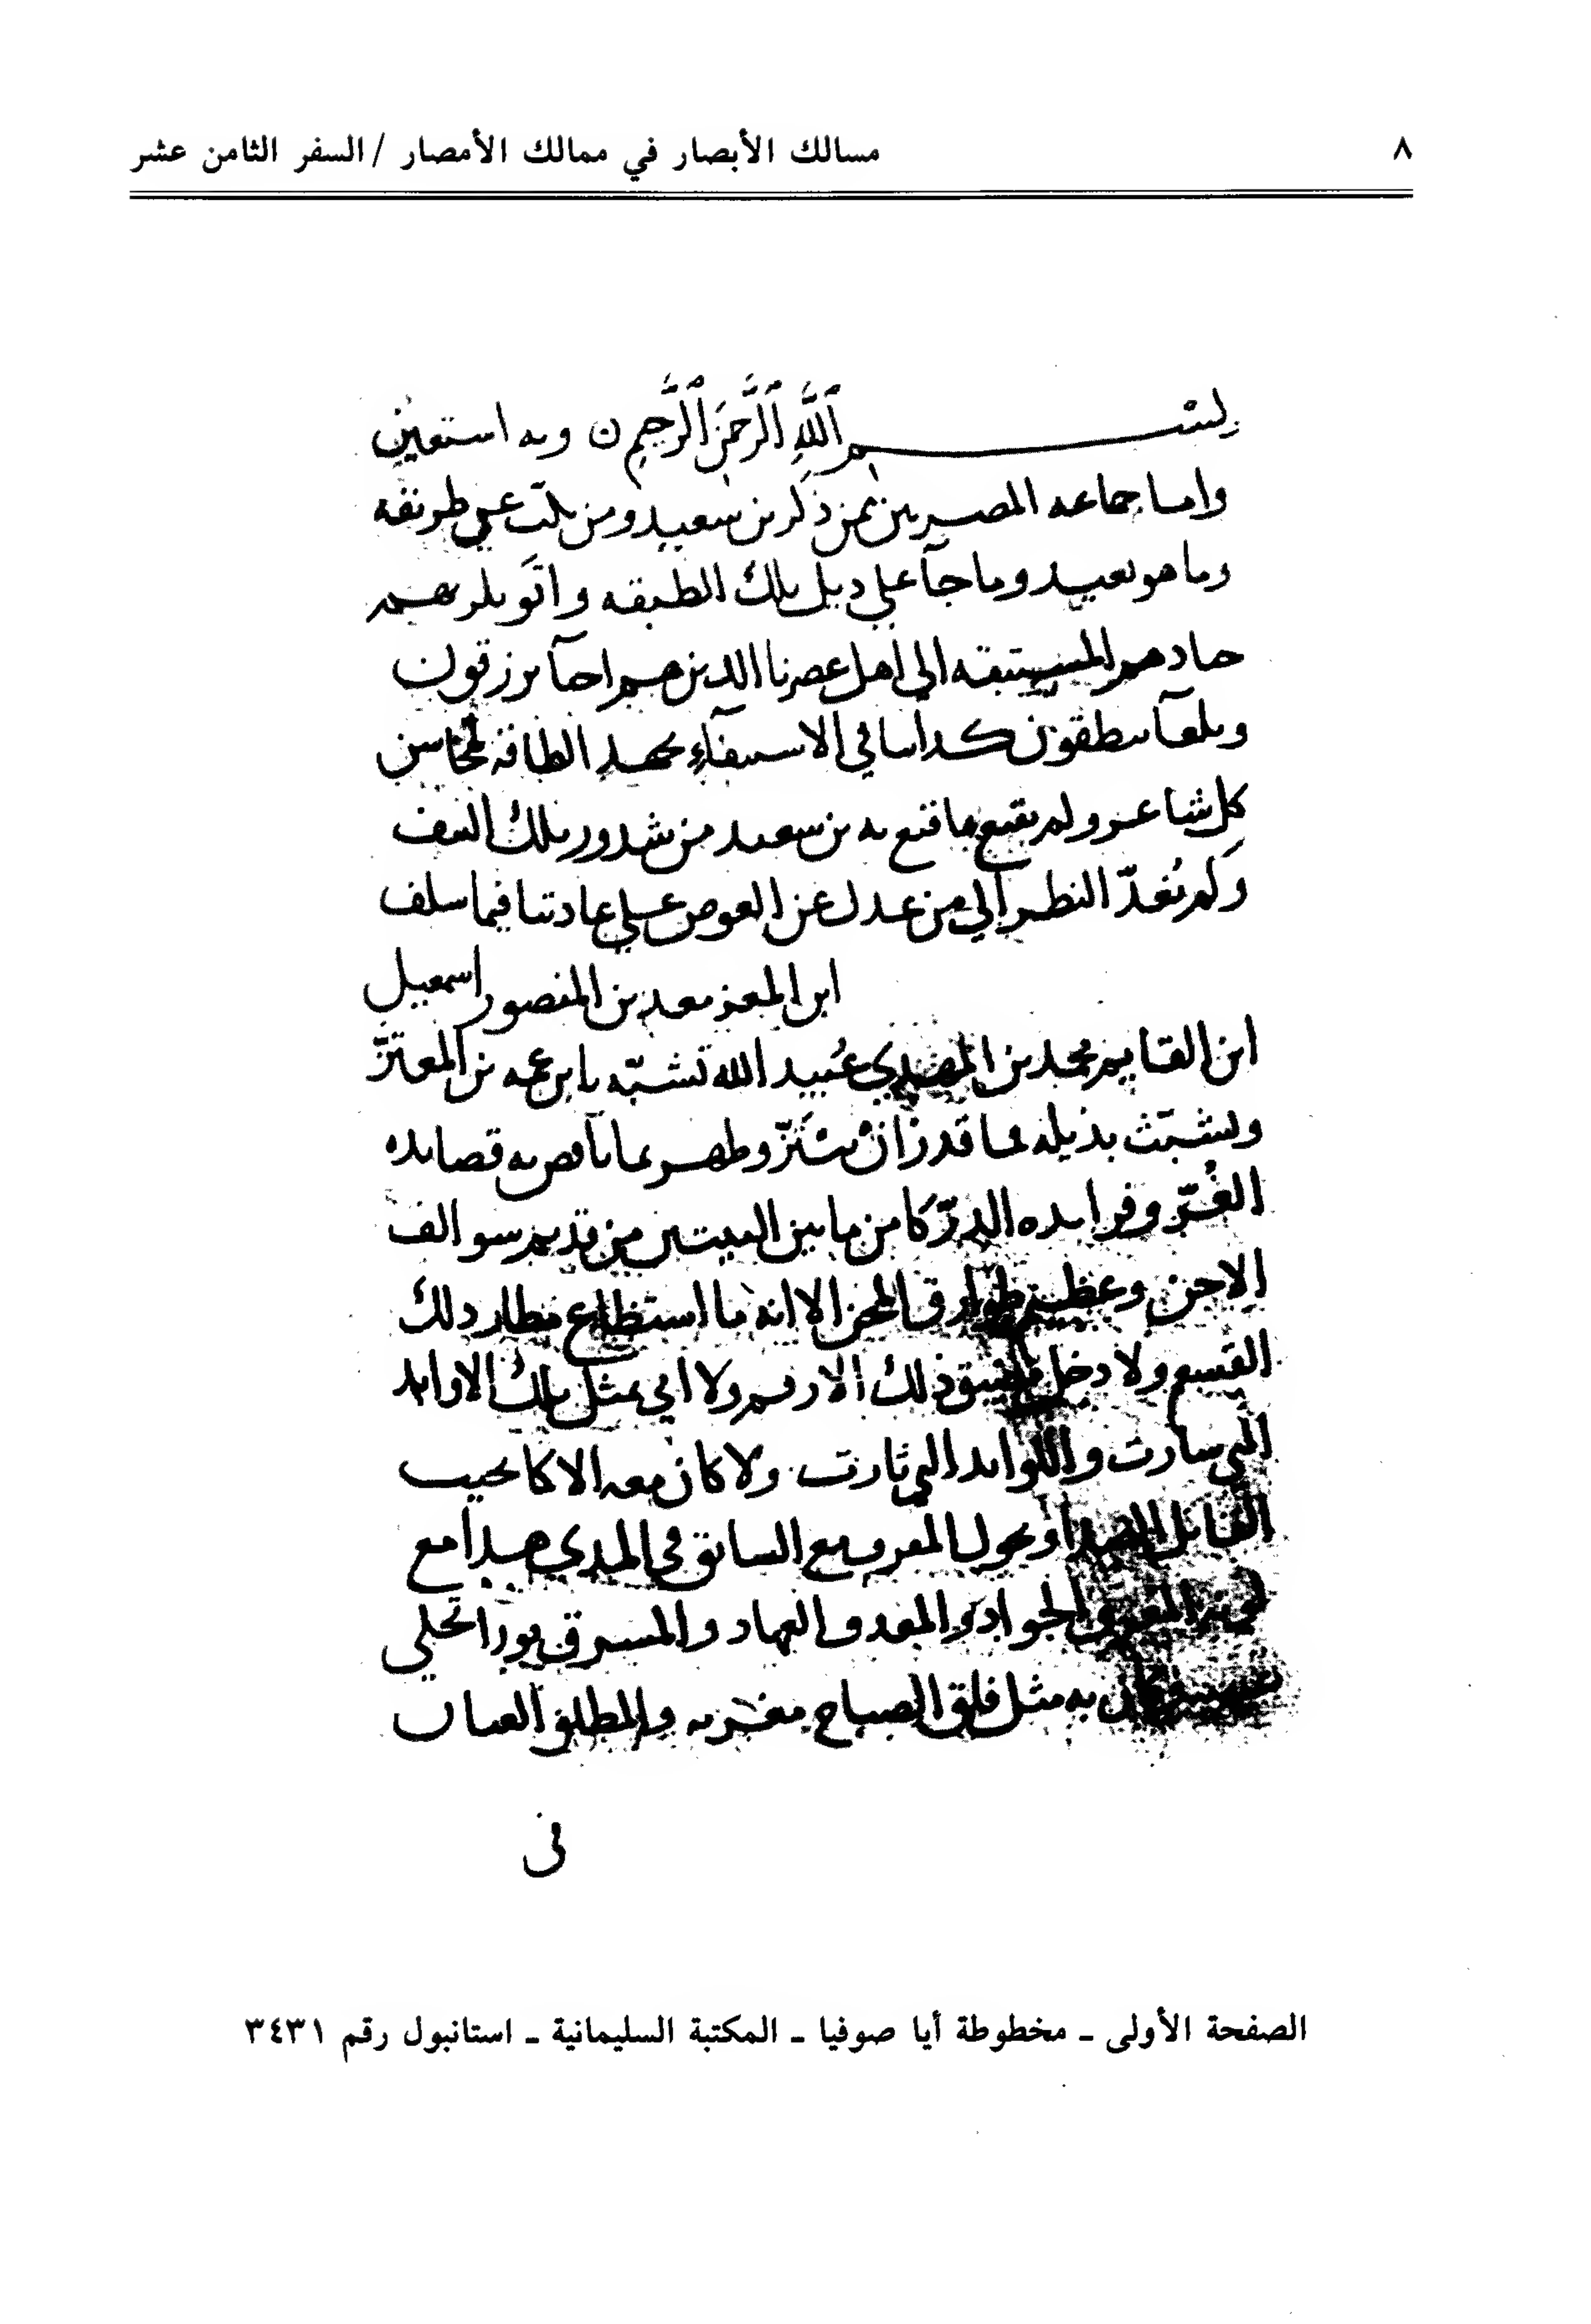 ٨
مسالك الأبصار في ممالك الأمصار / السفر الثامن عشر
بسم اللَّهِ الرَّحْمَنِ الرَّحِيمِ ن وبه استعين
واما جماعه المصريين ممن ذكر بن سعيد ومن يلت على طريقه
وما هو بعيد وما جآ على ذيل تلك الطبقه واتو
الى اهل عصرنا الذين هم احيآ يرزقون
ينطقون كدأبنا في الاستيفآء بجهد الطاقة لمحاسن
كل شاعر ولم يقنع بما قنع به بن سعيد من شذور تلك
ولم نُعدّ النظر الى من عدل عن الغوص على عادتنا فيما سلف
ابن المعز معد بن المنصور اسمعيل
ابن القايم محمد بن المهدي عُبيد الله تشبّه بابن عمه بن المعتزّ
وتشبّث بذيله فما قدر ان يبتزّ وظهر بما ناقض به قصايده
الغُرّ وفرايده الدرّ كامن ما بين البيتين من قديم سوالف
الاحن وعظيم طوارق المحن الا انه ما استطاع مطار ذلك
القسم ولا دخل مضيق ذلك الارقم ولا اتى بمثل تلك الاوابد
التي سارت والاوابد التي ثارت ولا كان معه الا كالمجيب
السابق في المدى هذا مع
الجواد
به مثل فلق الصباح مغربه والمطلق العنان
في
الصفحة الأولى ـ مخطوطة أيا صوفيا ـ المكتبة السليمانية ـ استانبول رقم ٣٤٣١